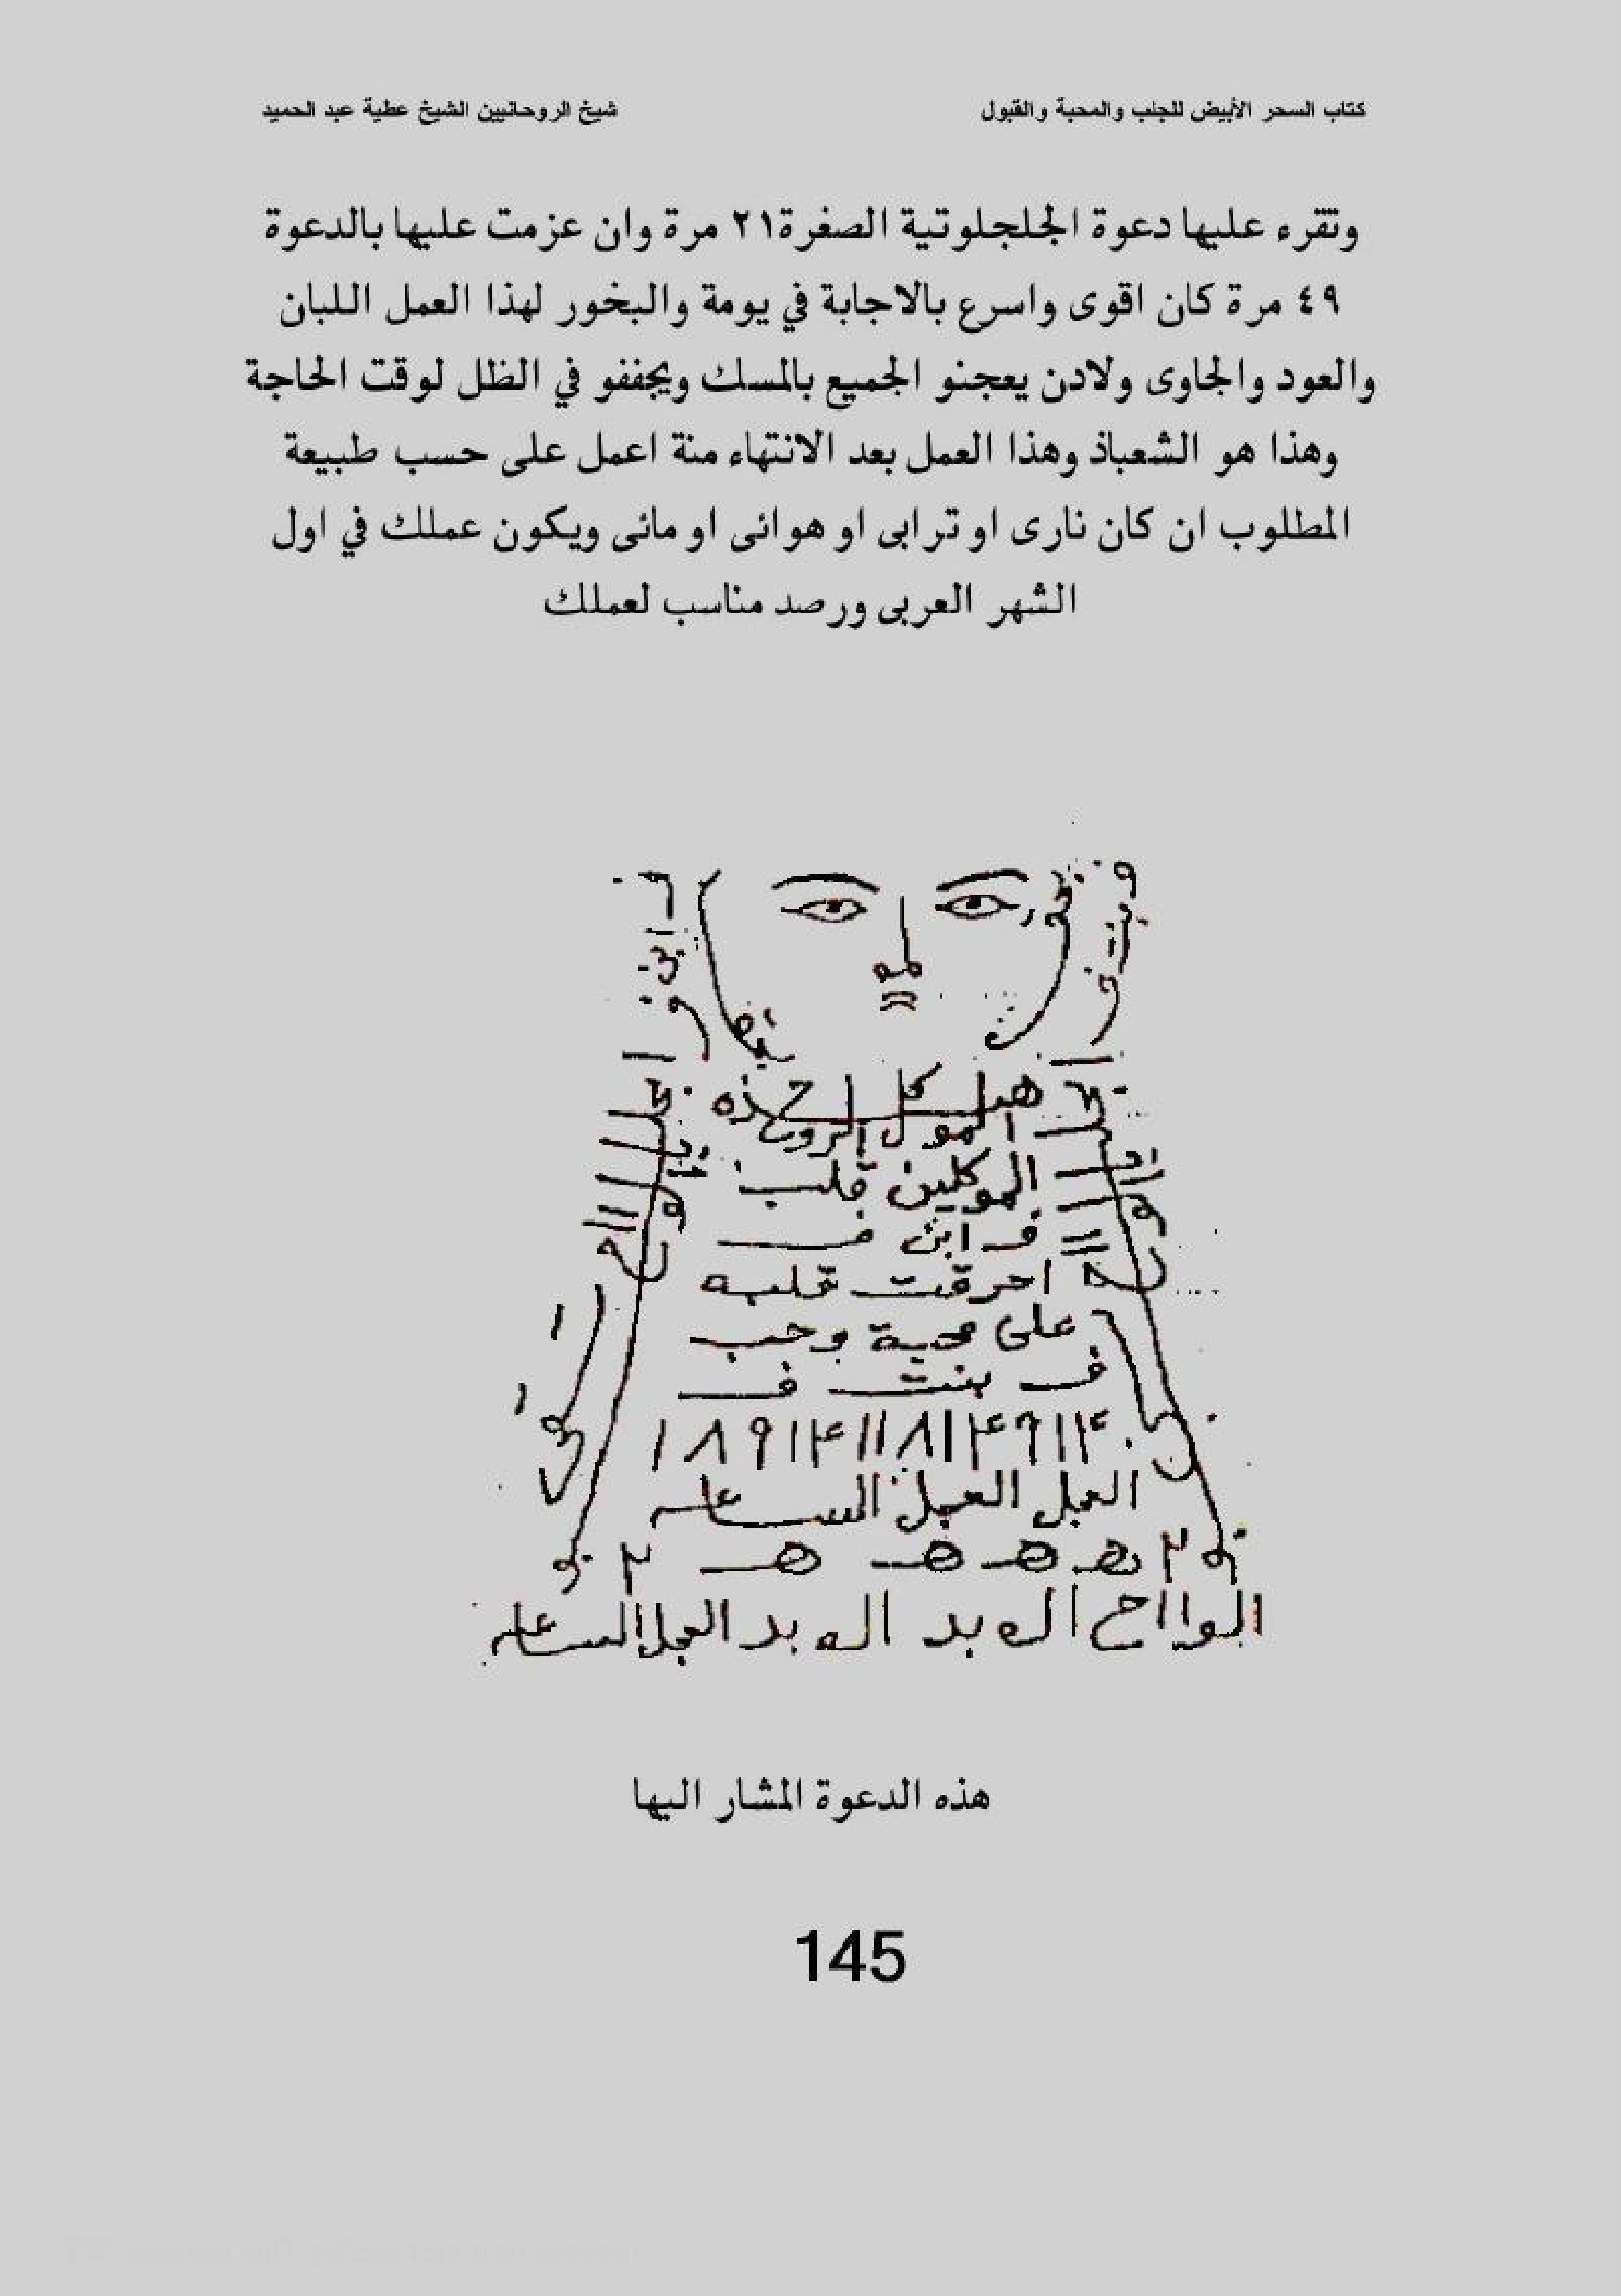 كتاب السحر الأبيض للجلب والمحبة والقبول
شيخ الروحانيين الشيخ عطية عبد الحميد
وتقرء عليها دعوة الجلجلوتية الصغرة٢١ مرة وان عزمت عليها بالدعوة
٤٩ مرة كان اقوى واسرع بالاجابة في يومة والبخور لهذا العمل اللبان
والعود والجاوى ولادن يعجنو الجميع بالمسك ويجففو في الظل لوقت الحاجة
وهذا هو الشعباذ وهذا العمل بعد الانتهاء منة اعمل على حسب طبيعة
المطلوب ان كان نارى او ترابى او هوائى او مائى ويكون عملك في اول
الشهر العربى ورصد مناسب لعملك
ف بنت ف
ف ابن ف
الموكلين قلب
ف ابن ف
احرقت قلبه
على محبة وحب
ف بنت ف
العجل العجل الساعه
٢ هـ هـ هـ هـ ٢
الواح اله بد اله بد العجل الساعه
هذه الدعوة المشار اليها
145